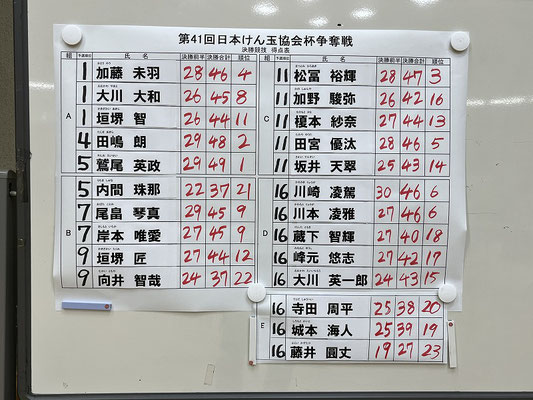 第41回日本けん玉協会杯争奪戦
決勝競技 得点表
組 予選順位 氏 名 決勝前半 決勝合計 順位
A
1 加藤 未羽 28 46 4
1 大川 大和 26 45 8
1 垣堺 智 26 44 11
4 田嶋 朗 29 48 2
5 鷲尾 英政 29 49 1
B
5 内間 珠那 22 37 21
7 尾畠 琴真 29 45 9
7 岸本 唯愛 27 45 9
9 垣堺 匠 27 44 12
9 向井 智哉 24 37 22
組 予選順位 氏 名 決勝前半 決勝合計 順位
C
11 松冨 裕輝 28 47 3
11 加野 駿弥 26 42 16
11 榎本 紗奈 27 44 13
11 田宮 優汰 28 46 5
11 坂井 天翠 25 43 14
D
16 川崎 凌駕 30 46 6
16 川本 凌雅 27 46 6
16 蔵下 智輝 27 40 18
16 峰元 悠志 27 42 17
16 大川 英一郎 24 43 15
E
16 寺田 周平 25 38 20
16 城本 海人 25 39 19
16 藤井 圓丈 19 27 23